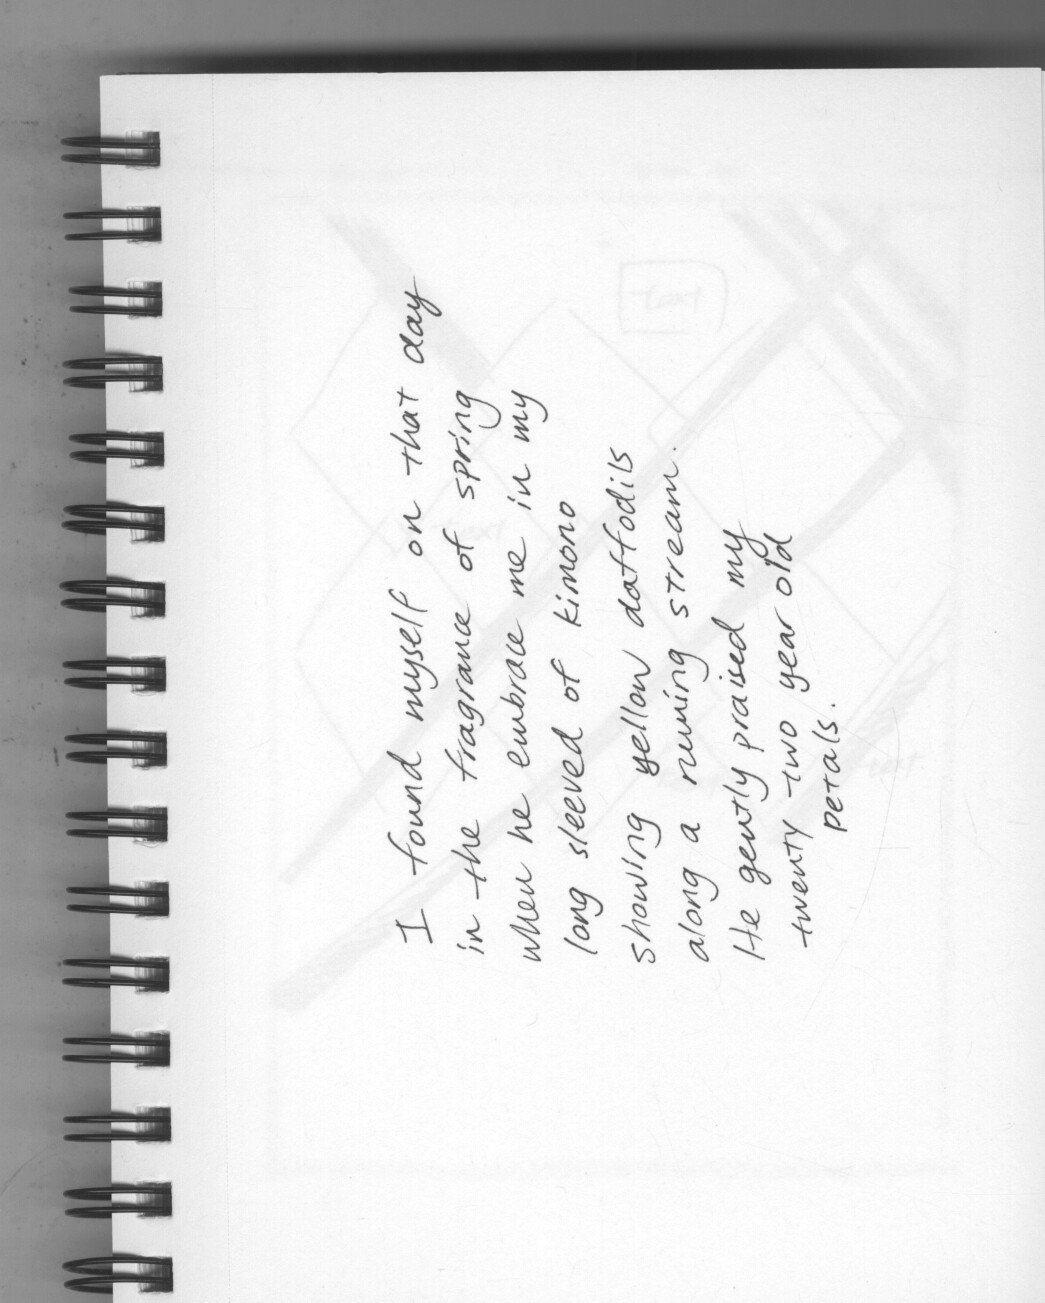 I found myself on that day
in the fragrance of spring
when he embrace me in my
long sleeved of kimono
showing yellow daffodils
along a running stream.
He gently praised my
twenty two year old
petals.
text
text
text
text